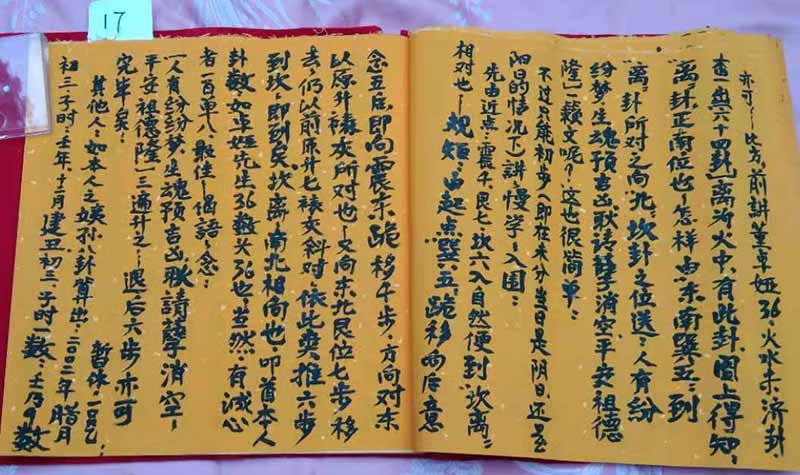 17
亦可~比方,前讲董卓娅36,火水未济卦,
查"六十四卦"离为火中,有此卦,图上得知,
"离"卦正南位也~怎样由东南巽"五"到
"离"卦所对之向"北"坎卦之位送:"人有纷
纷梦生魂预吉凶耿请孽消空,平安祖德
隆"籁文呢?这也很简单:
不过只能初步(即在未分当日是阴日,还是
阳日的情况下)讲~慢学~入围:
先由近点:震4、艮七、坎六入自然便到"坎离"
相对也~规矩:由起点巽"五",跪移向后意
念五后,即向震东跪移4步,方向对东
以原升裱灰所对也~又向东北艮位七步移
去,仍以前原升七裱灰斜对,依此类推六步
到坎,即到矣,坎离~南北相向也,叩首本人
卦数,如卓娅先生,36数大36也,当然,有诚心
者一百单八,最佳~偈语~念:
一人有纷纷梦,生魂预吉凶,耿请孽消空~
平安祖德隆"三遍升之~退后六步亦可
完毕矣~ 暂休,
其他人:如本人之姨孙:卦算出:二00二年腊月
初三子时:壬年、十二月建丑初三、子时一数:壬乃9数